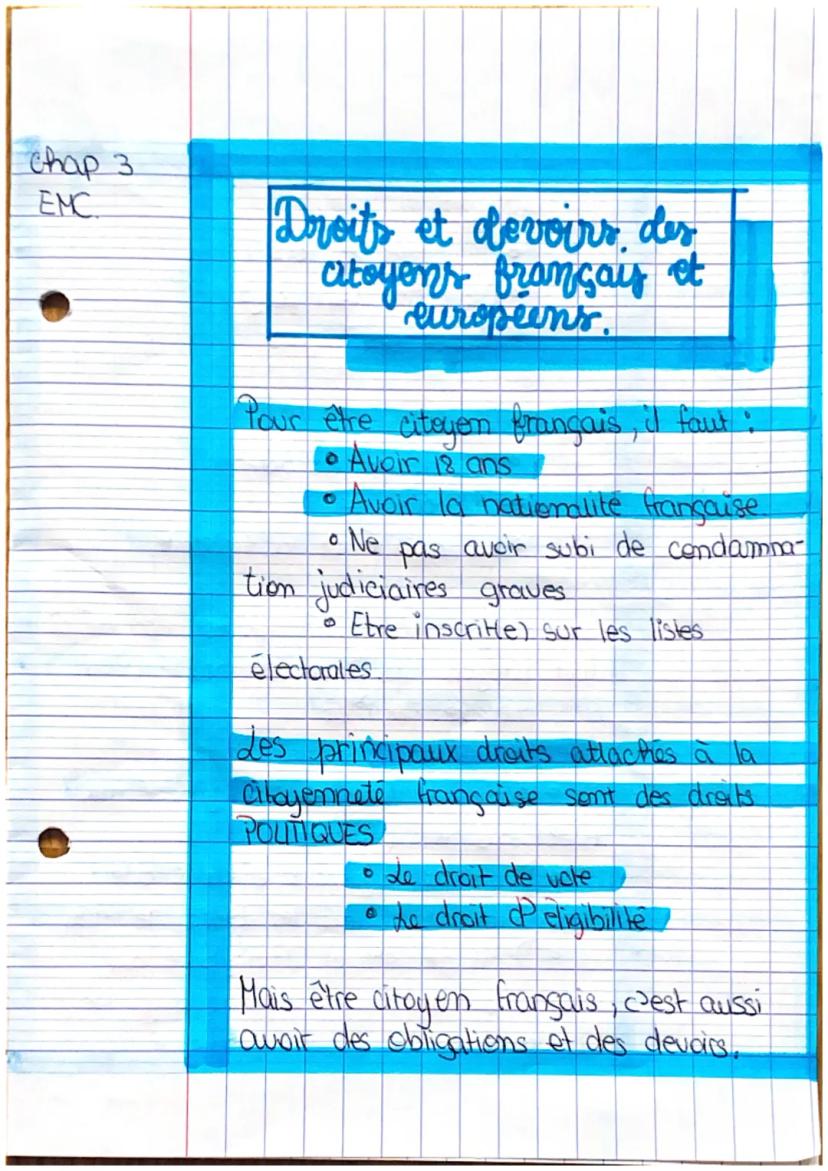 chap 3
EMC.
Droits et devoirs des
citoyens français et
européens.
Pour être citoyen français, il faut :
• Avoir 18 ans
• Avoir la nationalité française
• Ne pas avoir subi de condamna-
tion judiciaires graves
• Etre inscrit(e) sur les listes
électorales.
Les principaux droits attachés à la
citoyenneté française sont des droits
POLITIQUES
• Le droit de vote
• Le droit d'éligibilité
Mais être citoyen français, c'est aussi
avoir des obligations et des devoirs.